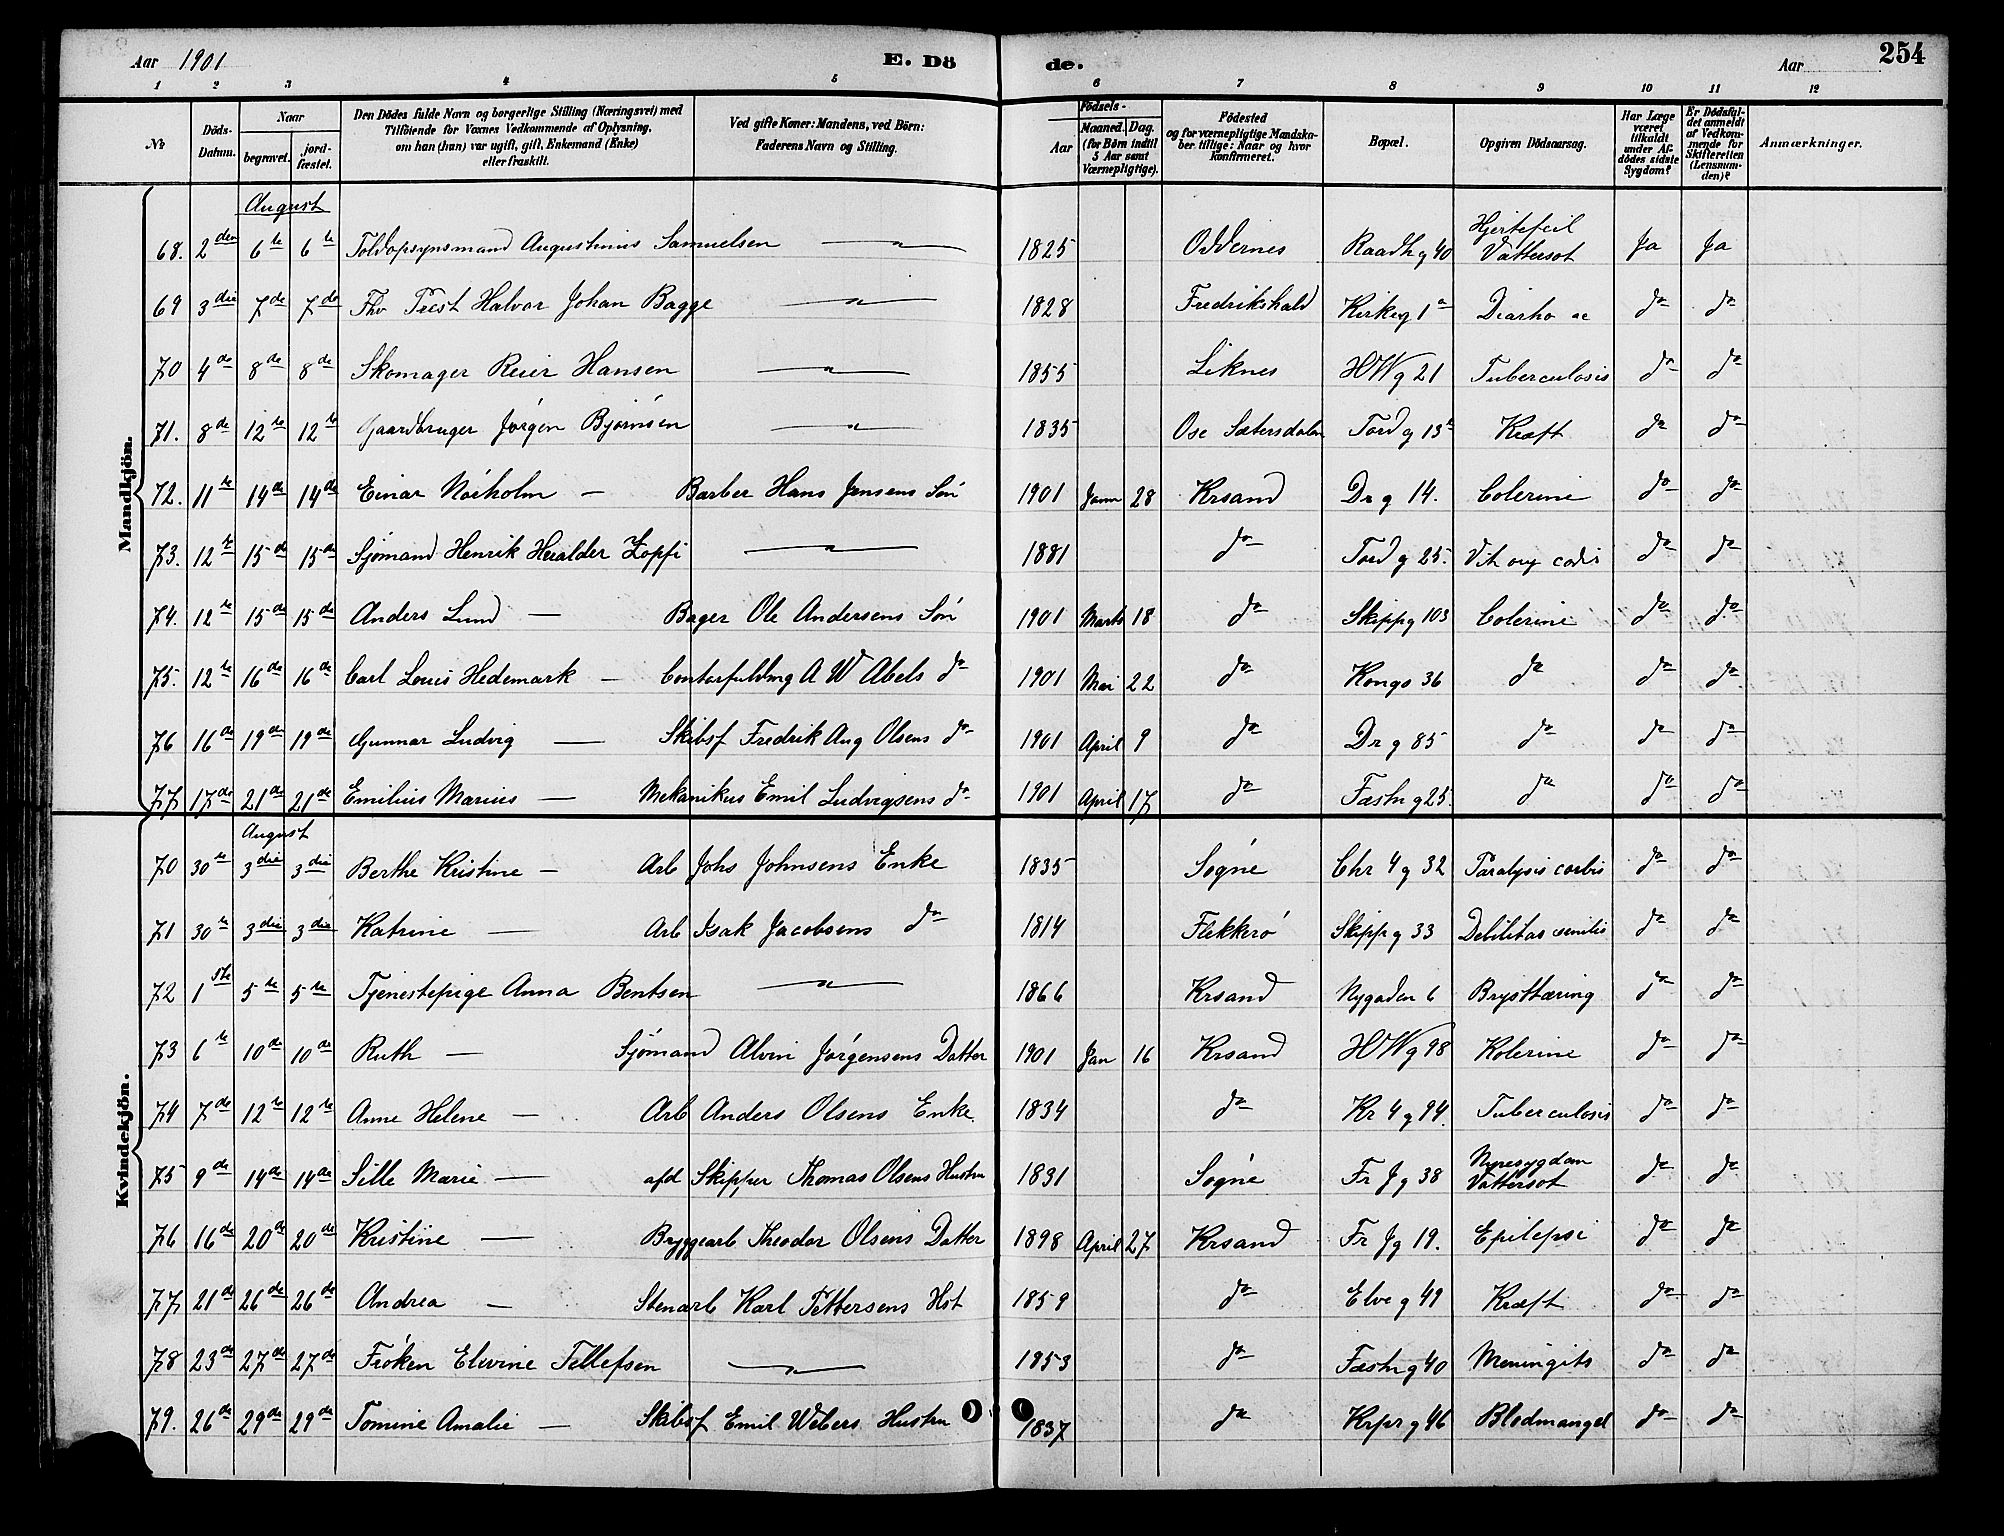 Aar 1901 E. Dö de. Aar 254
1 2 3 4 5 6 7 8 9 10 11 12
No Döds-Datum. Naar begravet. jord-fæstet. Den Dödes fulde Navn og borgerlige Stilling (Næringsvei) med Tilföiende for Voxnes Vedkommende af Oplysning, om han (hun) var ugift, gift, Enkemand (Enke) eller fraskilt. Ved gifte Koner: Mandens, ved Börn: Faderens Navn og Stilling. Födsels- Aar Maaned. Dag. (for Börn indtil 5 Aar samt Værnepligtige). Födested og for værnepligtige Mandskaber tillige: Naar og hvor konfirmeret. Bopæl. Opgiven Dödsaarsag. Har Læge været tilkaldt under Afdödes sidste Sygdom? Er Dödsfaldet anmeldt af Vedkommende for Skifteretten (Lensmanden)? Anmærkninger.
Mandkjön.
August
68. 2den 6te 6te Toldopsynsmand Augustinius Samuelsen — 1825 Oddernes Raadhg 40 Hjertefeil Vattersot Ja Ja
69 3die 7de 7de Fhv Præst Halvor Johan Bagge — 1828 Fredrikshald Kirkeg 1a Diarho ac do do
70 4de 8de 8de Skomager Reier Hansen — 1855 Liknes HWg 21 Tuberculosis do do
71. 8de 12te 12te Gaardbruger Jørgen Bjørnsen — 1835 Ose Sætersdalen Tord g 13a Kræft do do
72. 11te 14de 14de Einar Norholm — Barber Hans Jensens Søn 1901 Janu 28 Krsand Dr g 14. Colerine do do
73. 12te 15de 15de Sjømand Henrik Heralder Zopfi — 1881 do Tord g 25. Vit org cordis do do
74. 12te 15de 15de Anders Lund — Bager Ole Andersens Søn 1901 Marts 18 do Skippg 103 Colerine do do
75. 12te 16de 16de Carl Louis Hedemark — Contorfuldmg A W Abels do 1901 Mai 22 do Kongs 36 do do do
76 16de 19de 19de Gunnar Ludvig — Skibsf Fredrik Aug Olsens do 1901 April 9 do Dr g 85 do do do
77 17de 21de 21de Emilius Marius — Mekanikus Emil Ludvigsens do 1901 April 17 do Fæstn g 25. do do do
Kvindekjön.
August
70 30te 3die 3die Berthe Kristine — Arb Johs Johnsens Enke 1835 Søgne Chr 4 g 32 Paralysis cordis do do
71 30te 3die 3die Katrine — Arb Isak Jacobsens do 1814 Flekkerø Skippg 33 Debilitas senilis do do
72 1ste 5te 5te Tjenestepige Anna Bentsen — 1866 Krsand Nygaden 6 Brysttæring do do
73 6te 10de 10de Ruth — Sjømand Alvin Jørgensens Datter 1901 Jan 16 Krsand HWg 98 Kolerine do do
74 7de 12te 12te Anne Helene — Arb Anders Olsens Enke. 1834 do Kr 4 g 94. Tuberculosis do do
75 9de 14de 14de Sille Marie — afd Skipper Thomas Olsens Hustru 1831 Søgne Fr J g 38 Nyresygdom Vattersot do do
76 16de 20de 20de Kristine — Bryggearb Theodor Olsens Datter 1898 April 27 Krsand Fr J g 19. Epilepsi do do
77 21de 26de 26de Andrea — Stenarb Karl Pettersens Hst 1859 do Elve g 49 Kræft do do
78 23de 27de 27de Frøken Elevine Tellefsen — 1853 do Fæstn g 40 Meningits do do
79. 26de 29de 29de Tomine Amalie — Skibsf Emil Webers Hustru 1837 do Krpr g 46 Blodmangel do do